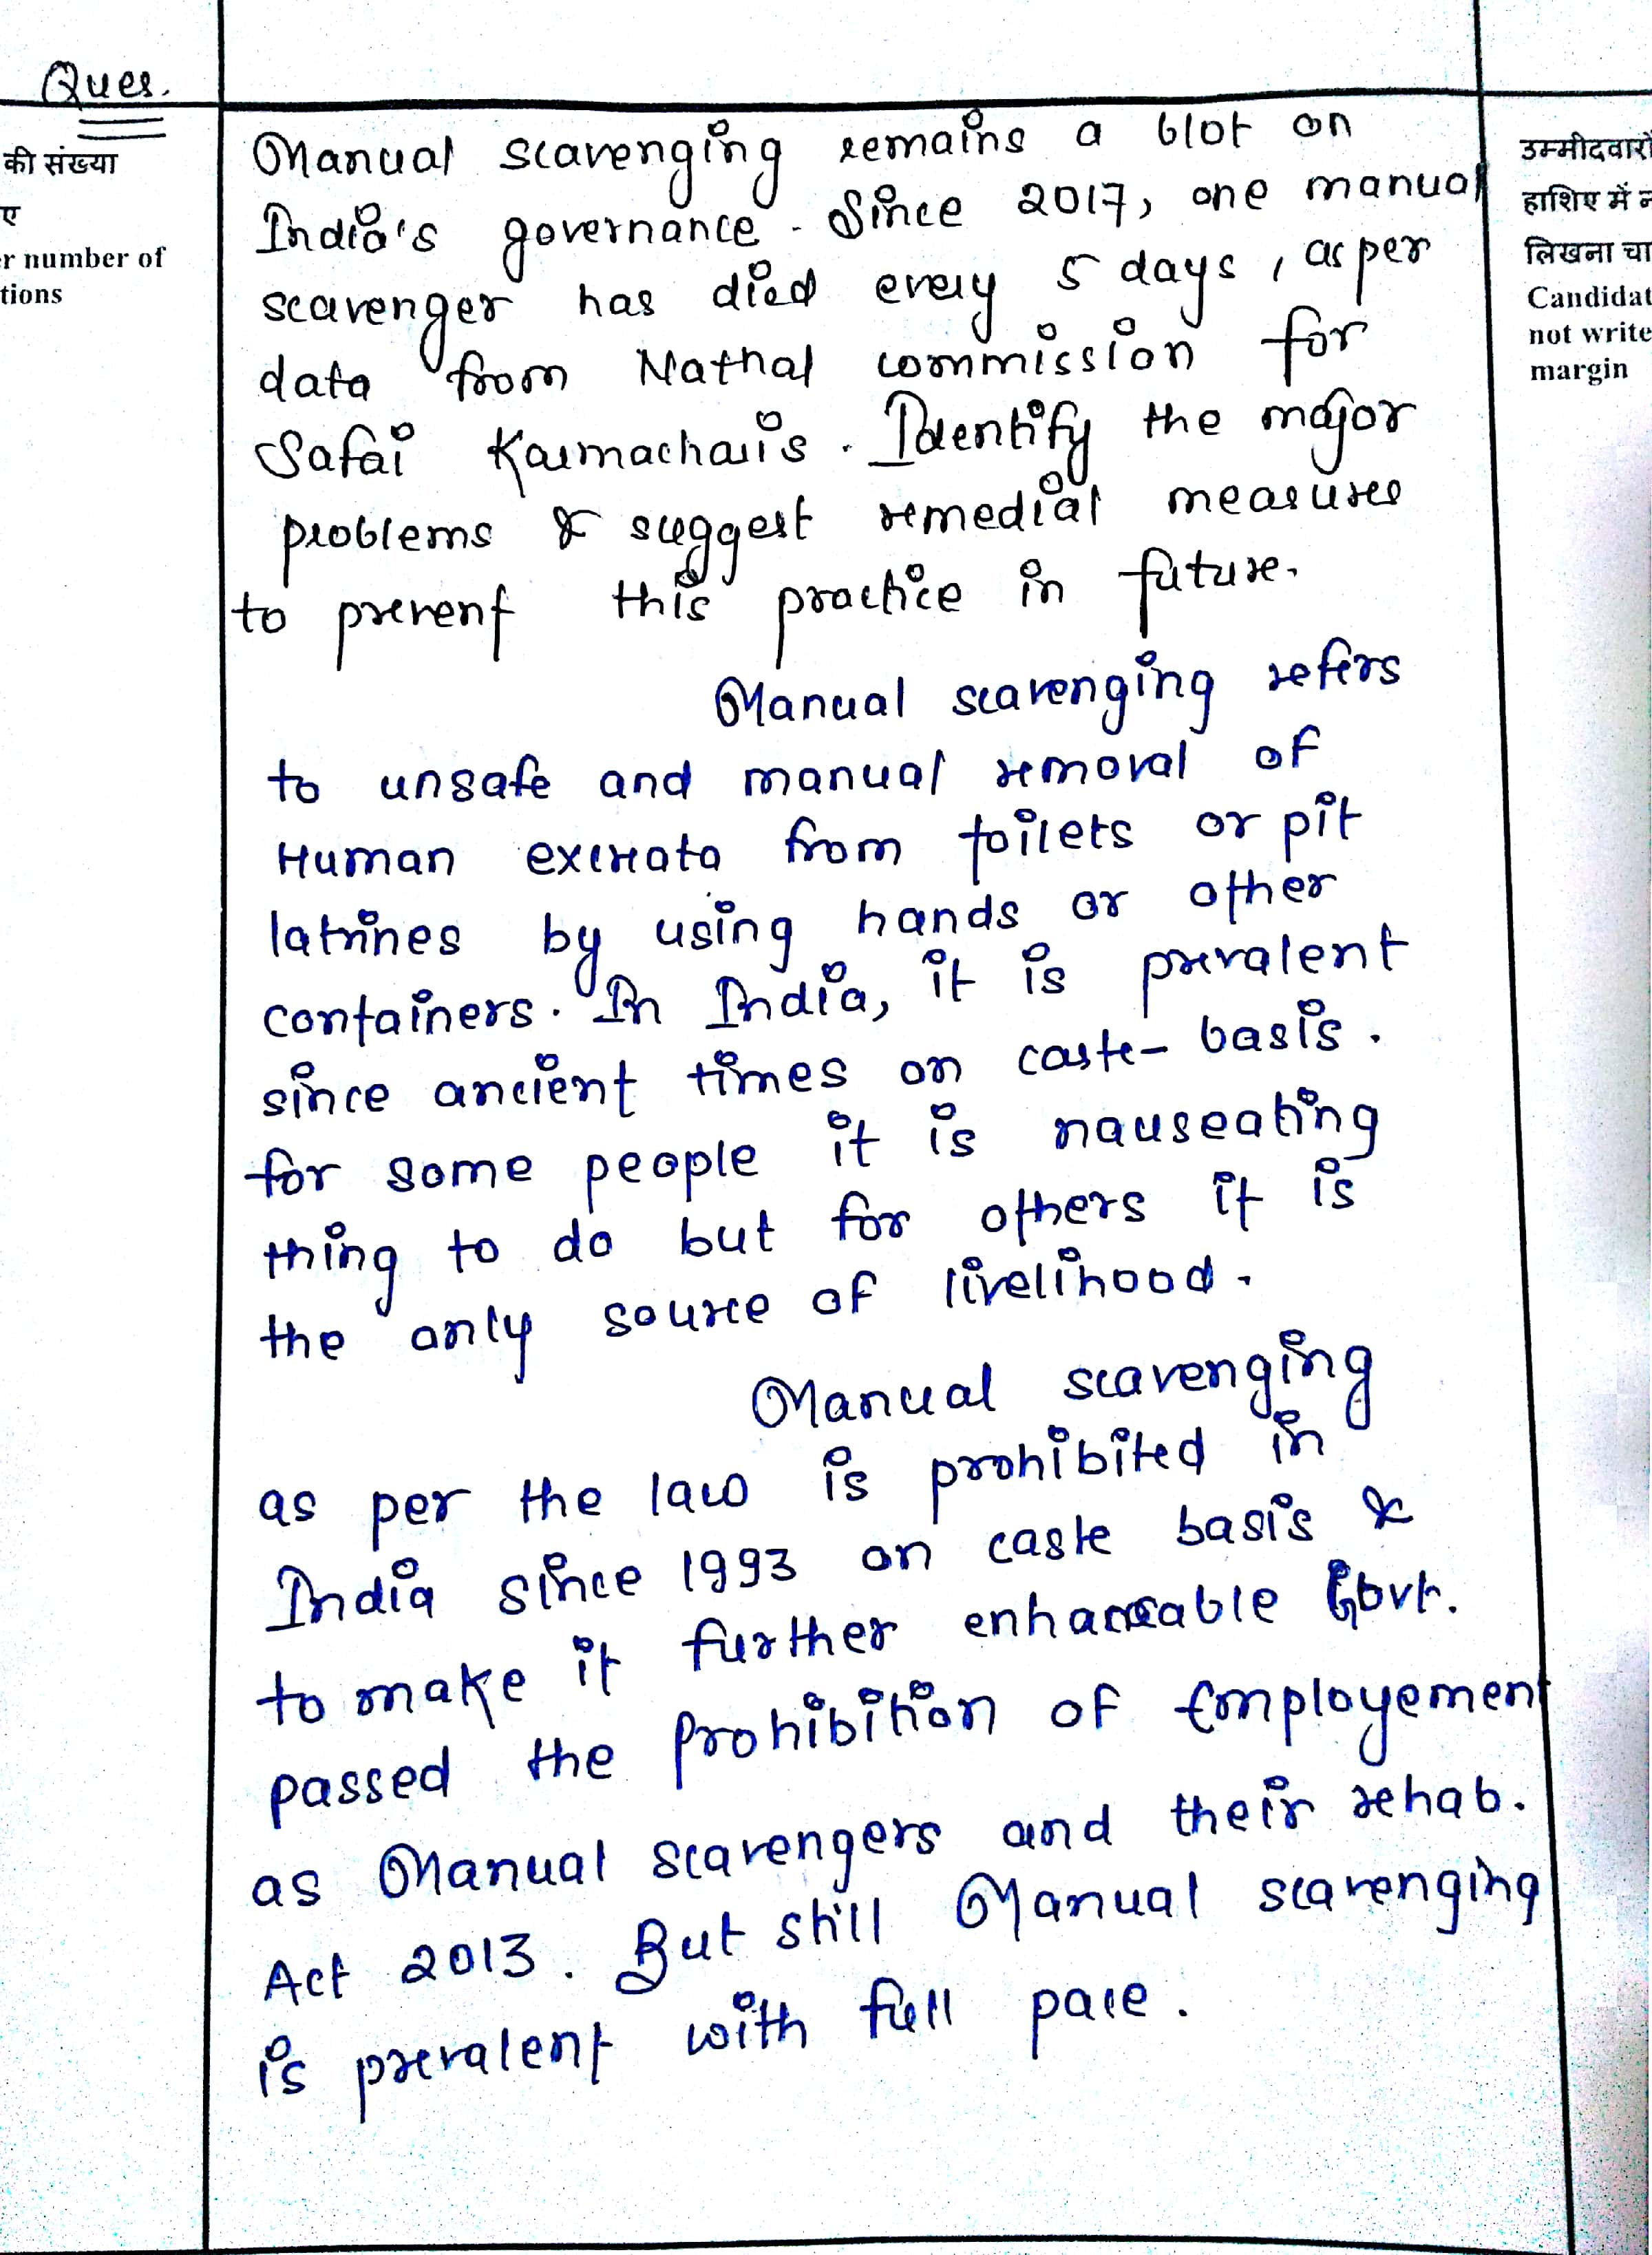 Ques.
की संख्या
ए
r number of
tions
Manual scavenging remains a blot on
India's governance. Since 2017, one manual
scavenger has died every 5 days, as per
data from Natnal commission for
Safai Karmacharis. Identify the major
problems & suggest remedial measures
to prevent this practice in future.
Manual scavenging refers
to unsafe and manual removal of
Human excreata from toilets or pit
latrines by using hands or other
containers. In India, it is prevalent
since ancient times on caste-basis.
for some people it is nauseating
thing to do but for others it is
the only source of livelihood.
Manual scavenging
as per the law is prohibited in
India since 1993 on caste basis &
to make it further Govt.
passed the Prohibition of Employement
as Manual scavengers and their rehab.
Act 2013. But still Manual scavenging
is prevalent with full pace.
उम्मीदवारों
हाशिए में न
लिखना चा
Candidat
not write
margin